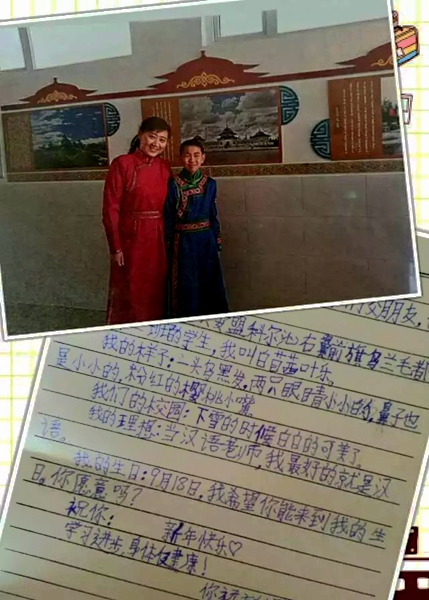 交朋友,
盟科尔沁右前旗乌兰毛都
班的学生,我叫白茜茜叶乐。
我的样子:一头乌黑发,两只眼睛小小的,鼻子也
是小小的,粉红的樱桃小嘴
我们的校园:下雪的时候白白的可美了。
我的理想:当汉语老师,我最好的就是汉
语。
我的生日:9月18日,我希望你能来到我的生
日。你愿意吗?
祝你:
新年快乐♡
学习进步,身体健康!